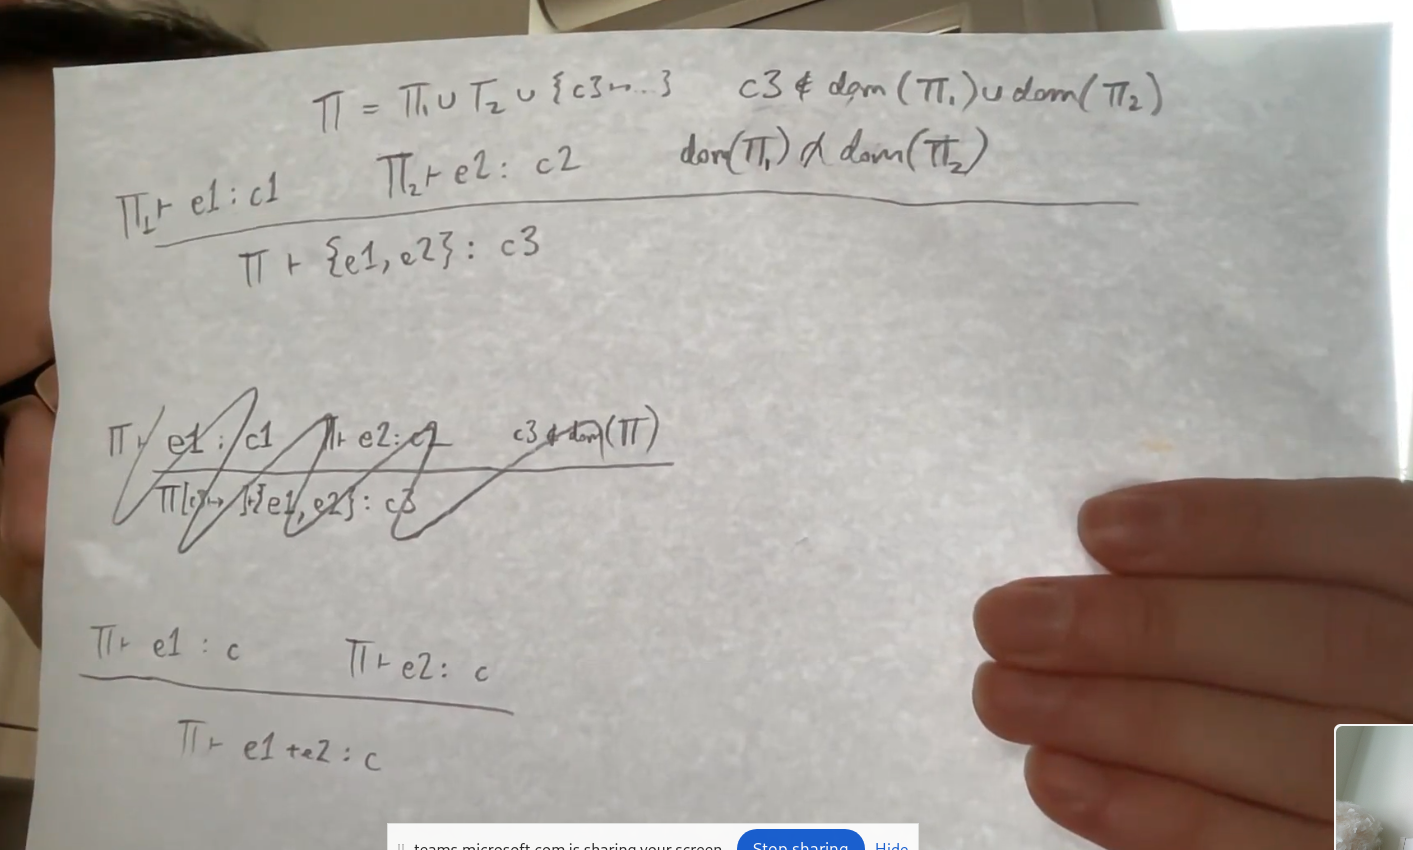 Π = Π₁ ∪ T₂ ∪ {c3 ↦ ..} c3 ∉ dom(Π₁) ∪ dom(Π₂)
Π₁ ⊢ e1 : c1 Π₂ ⊢ e2 : c2 dom(Π₁) ≬ dom(Π₂)
Π ⊢ {e1, e2} : c3
Π ⊢ e1 : c1 Π ⊢ e2 : c2 c3 ∉ dom(Π)
{e1, e2} : c3
Π ⊢ e1 : c Π ⊢ e2 : c
Π ⊢ e1 + e2 : c
teams.microsoft.com is sharing your screen. Stop sharing Hide